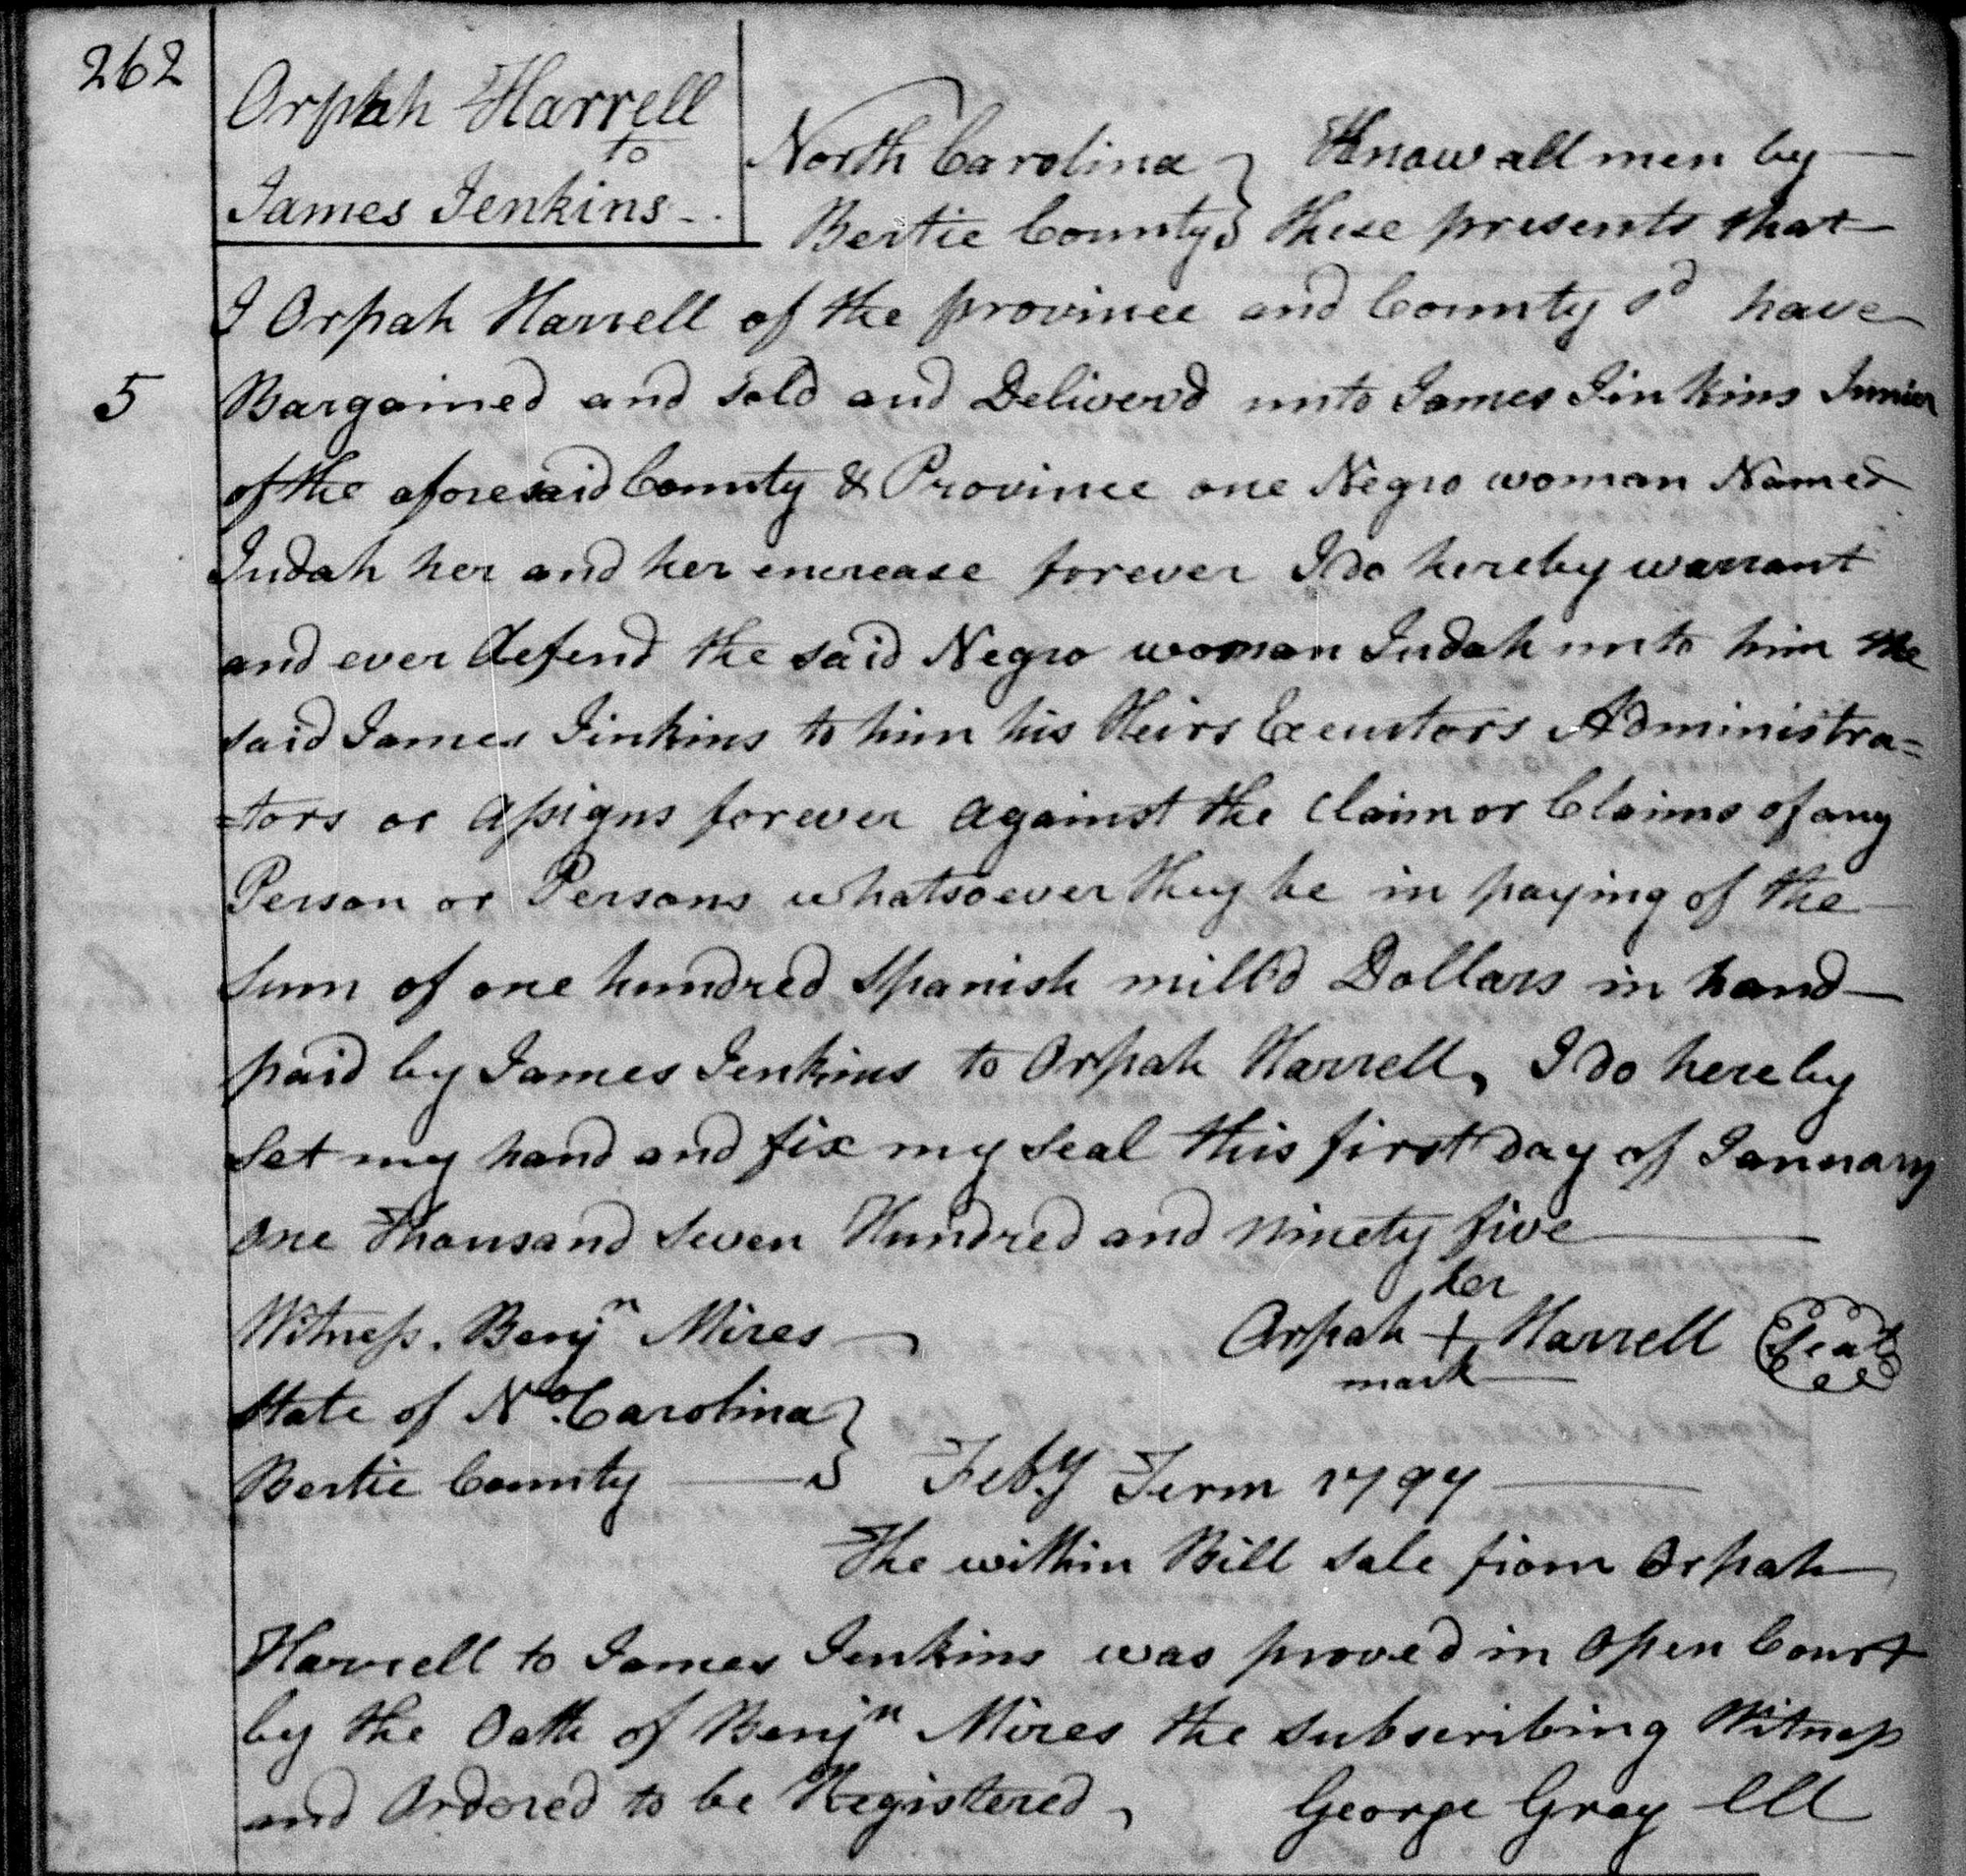 262
Orpah Harrell
to
James Jenkins
North Carolina } Know all men by
Bertie County } these presents that
I Orpah Harrell of the province and County sd have
5
Bargained and sold and Deliverd unto James Jinkins Junier
of the aforesaid County & Province one Negro woman Named
Judah her and her encrease forever I do hereby warrant
and ever defend the said Negro woman Judah unto him the
said James Jinkins to him his Heirs Executors Administra=
=tors or assigns forever against the Claim or Claims of any
Person or Persons whatsoever they be in paying of the
sum of one hundred Spanish mill'd Dollars in hand
paid by James Jenkins to Orpah Harrell, I do hereby
set my hand and fix my seal this first day of January
one Thousand seven Hundred and ninety five
her
Witness. Benjn Mires Orpah + Harrell Seal
mark
State of No. Carolina }
Bertie County } Feby Term 1797
The within Bill sale from Orpah
Harrell to James Jenkins was proved in Open Court
by the Oath of Benjn Mires the subscribing Witness
and Ordered to be Registered, George Gray CCC